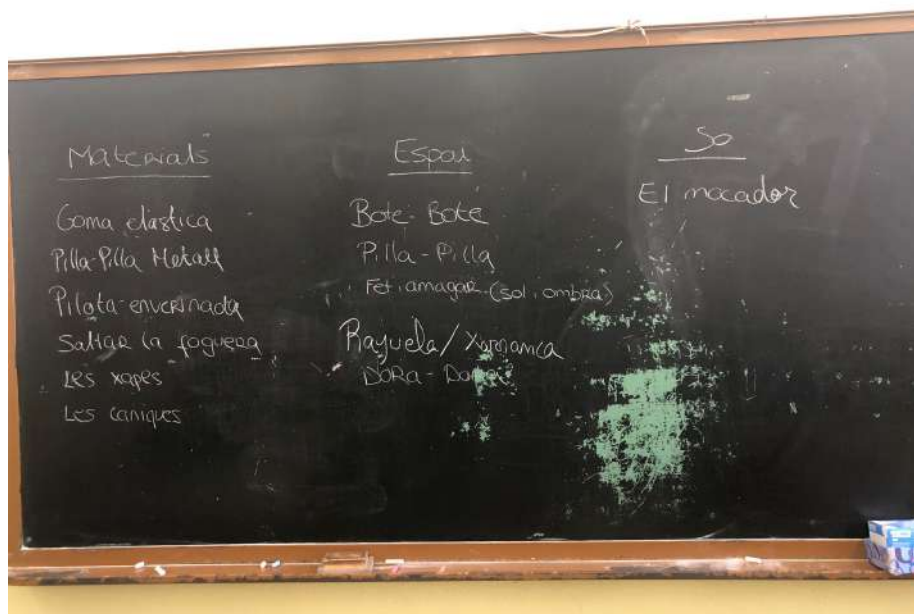 Materials
Goma elàstica
Pilla-Pilla Metall
Pilota-enverinada
Saltar la foguera
Les xapes
Les caniques
Espai
Bote-Bote
Pilla-Pilla
Fet i amagar (sol i ombra)
Rayuela/Xarranca
DORA-
So
El mocador